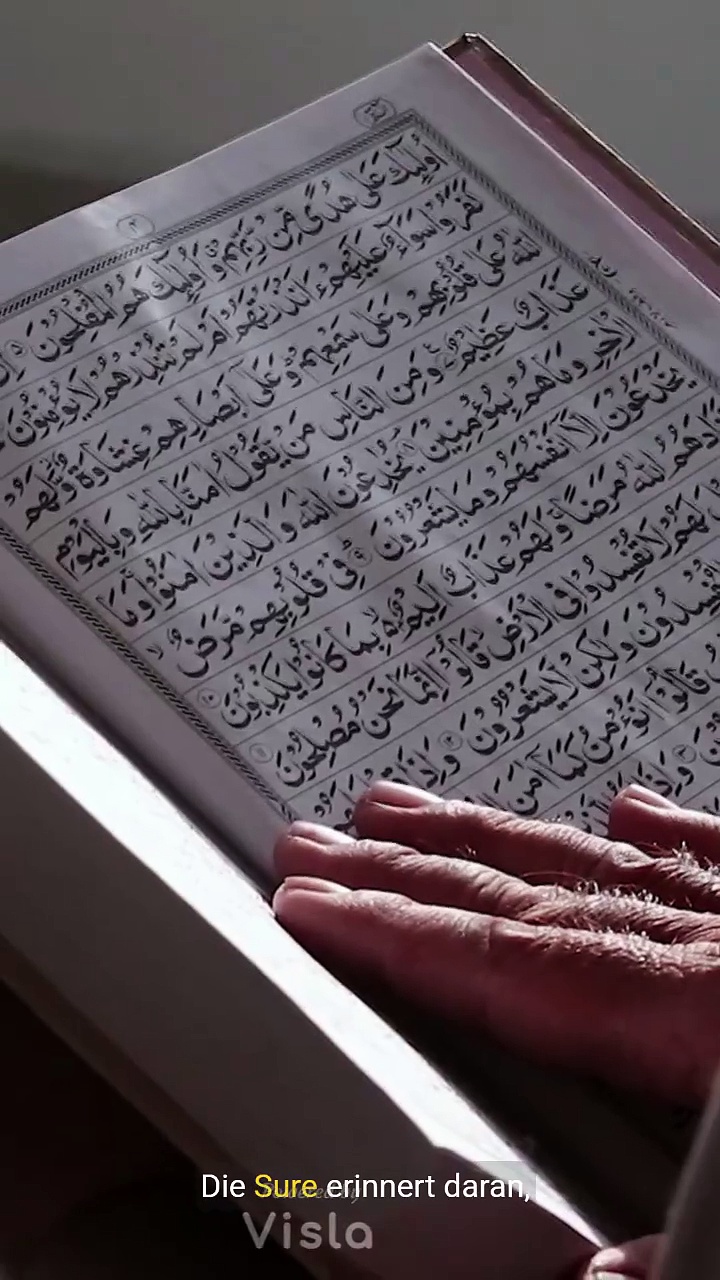 اُولٰٓئِكَ عَلٰى هُدًى مِّنْ رَّبِّهِمْ وَاُولٰٓئِكَ هُمُ الْمُفْلِحُوْنَ ٥
كَفَرُوْا سَوَآءٌ عَلَيْهِمْ ءَاَنْذَرْتَهُمْ اَمْ لَمْ تُنْذِرْهُمْ لَا يُؤْمِنُوْنَ
اللّٰهُ عَلٰى قُلُوْبِهِمْ وَعَلٰى سَمْعِهِمْ وَعَلٰٓى اَبْصَارِهِمْ غِشَاوَةٌ وَّلَهُمْ
عَذَابٌ عَظِيْمٌ وَمِنَ النَّاسِ مَنْ يَّقُوْلُ اٰمَنَّا بِاللّٰهِ وَبِالْيَوْمِ
الْاٰخِرِ وَمَا هُمْ بِمُؤْمِنِيْنَ يُخٰدِعُوْنَ اللّٰهَ وَالَّذِيْنَ اٰمَنُوْا وَمَا
يَخْدَعُوْنَ اِلَّآ اَنْفُسَهُمْ وَمَا يَشْعُرُوْنَ فِيْ قُلُوْبِهِمْ مَّرَضٌ
فَزَادَهُمُ اللّٰهُ مَرَضًا وَلَهُمْ عَذَابٌ اَلِيْمٌ بِمَا كَانُوْا يَكْذِبُوْنَ ١٠
لَهُمْ لَا تُفْسِدُوْا فِى الْاَرْضِ قَالُوْٓا اِنَّمَا نَحْنُ مُصْلِحُوْنَ ١١
الْمُفْسِدُوْنَ وَلٰكِنْ لَّا يَشْعُرُوْنَ ١٢ وَاِذَا
قَالُوْٓا اَنُؤْمِنُ كَمَآ اٰمَنَ
Die Sure erinnert daran,
Visla